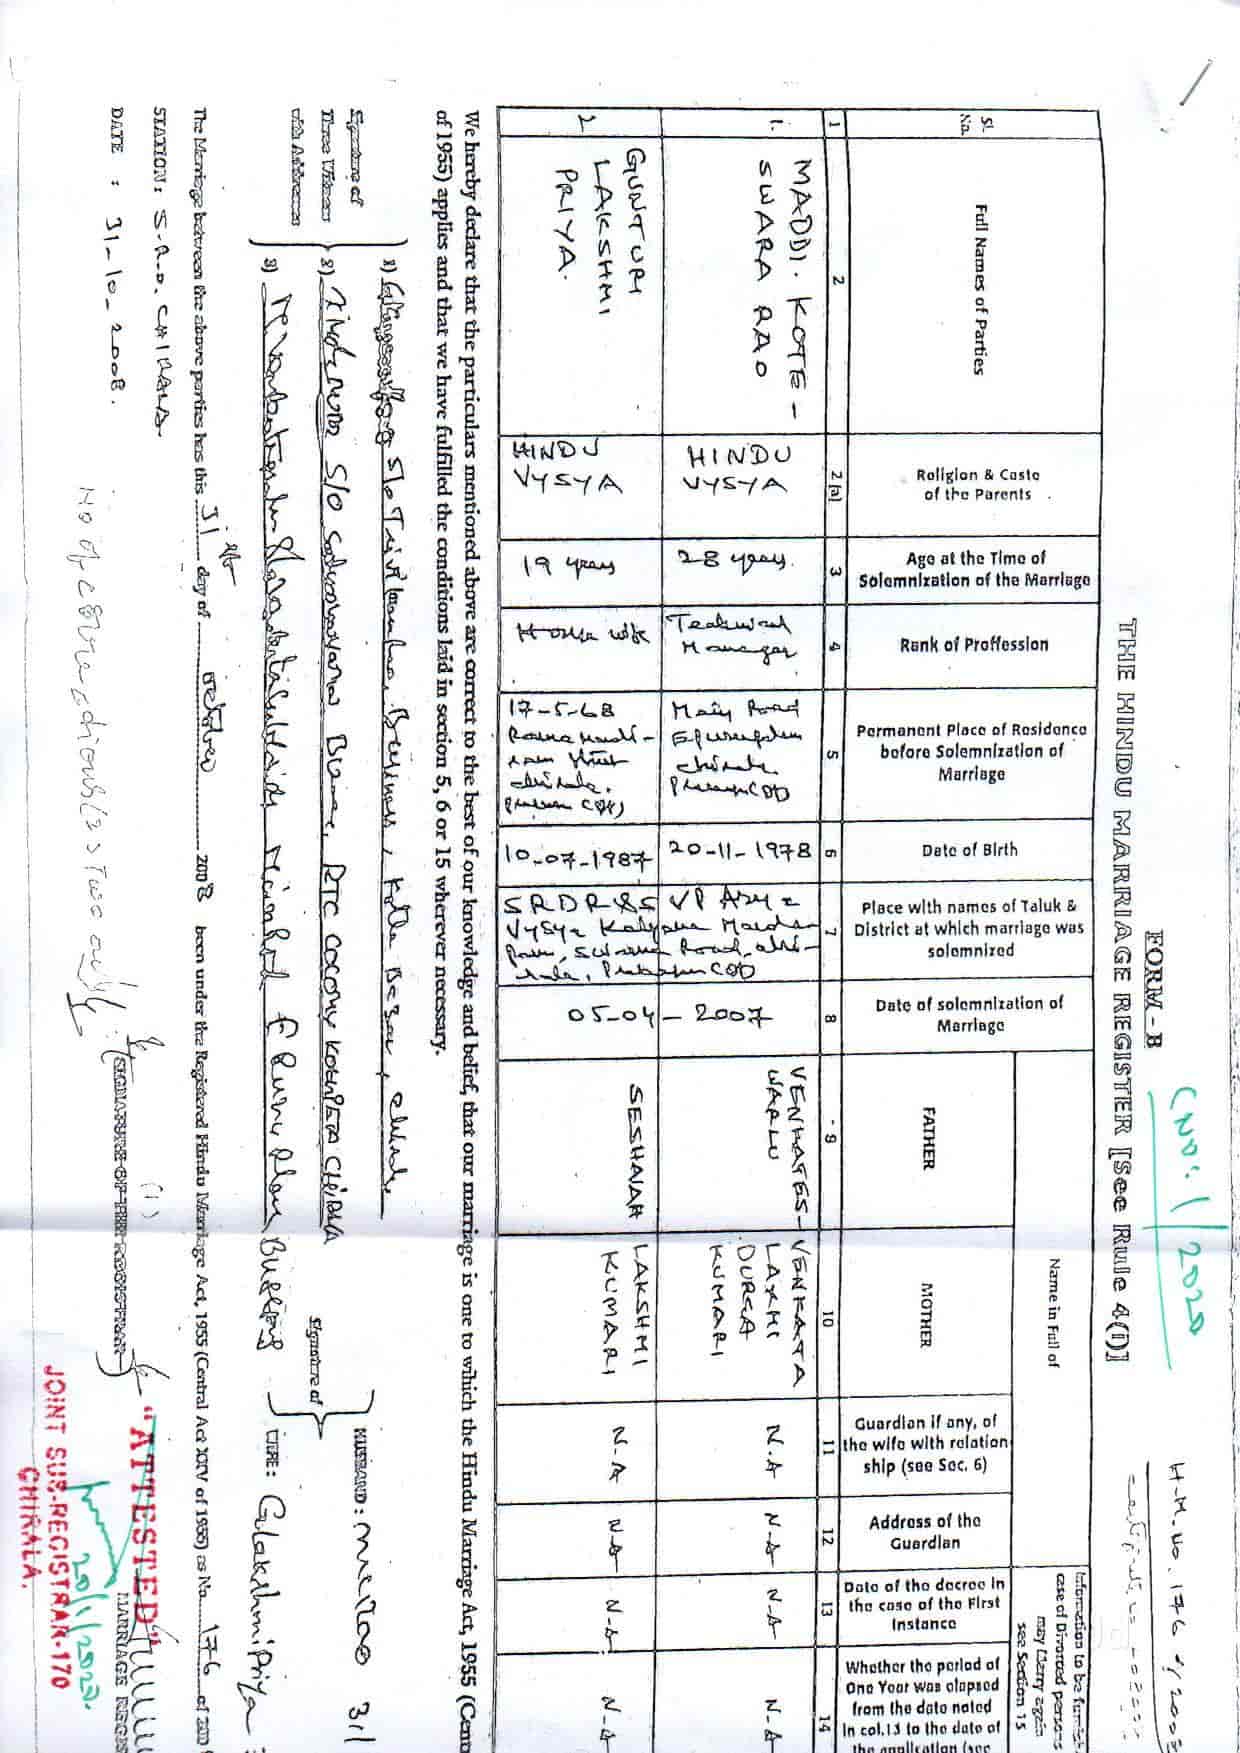 FORM - B
CNO: 1/2020
H.M. No. 176 of 2008
THE HINDU MARRIAGE REGISTER [See Rule 4(i)]
Sl. No.
Full Names of Parties
Religion & Caste of the Parents
Age at the Time of Solemnization of the Marriage
Rank of Proffession
Permanent Place of Residence before Solemnization of Marriage
Date of Birth
Place with names of Taluk & District at which marriage was solemnized
Date of solemnization of Marriage
Name in Full of
FATHER
MOTHER
Guardian if any, of the wife with relation ship (see Sec. 6)
Address of the Guardian
Information to be furnish
case of Divorced persons
may Marry again
see Section 15
Date of the decree in the case of the First Instance
Whether the period of One Year was elapsed from the date noted In col.13 to the date of the application (see
1 2 2(a) 3 4 5 6 7 8 9 10 11 12 13 14
1. MADDI. KOTE-
SWARA RAO
HINDU
VYSYA
28 years.
Technical
Manager
Main Road
Epurupalem
chirala
Prakasam (Dt)
20-11-1978
SRDR&S VP Arya
Vysya Kalyana Mandapam, Swarna Road, chirala, Prakasam (Dt)
05-04-2007
VENKATES-
WARLU
VENKATA
LAXMI
DURGA
KUMARI
N.A
N-A
N-A
N-A
2 GUNTURI
LAKSHMI
PRIYA.
HINDU
VYSYA
19 years
House wife
17-5-68
street
chirala.
10-07-1987
SESHAIAH
LAKSHMI
KUMARI
N.A
N-A
N-A
N-A
We hereby declare that the particulars mentioned above are correct to the best of our knowledge and belief, that our marriage is one to which the Hindu Marriage Act, 1955 (Cent
of 1955) applies and that we have fulfilled the conditions laid in section 5, 6 or 15 wherever necessary.
Signature of
Three Witness
with Addresses
1) S/o Business,
2) S/o RTC COLONY
3)
Signature of
HUSBAND : 31
WIFE : G Lakshmi Priya
The Marriage between the above parties has this 31st day of october 2008 been under the Registered Hindu Marriage Act, 1955 (Central Act XXV of 1955) as No. 176 of 200
STATION : S.R.O. CHIRALA.
DATE : 31-10-2008.
(SIGNATURE OF THE REGISTRAR)
(1)
"ATTESTED"
MARRIAGE REGIS
JOINT SUB-REGISTRAR-170
CHIRALA.
20/1/2020.